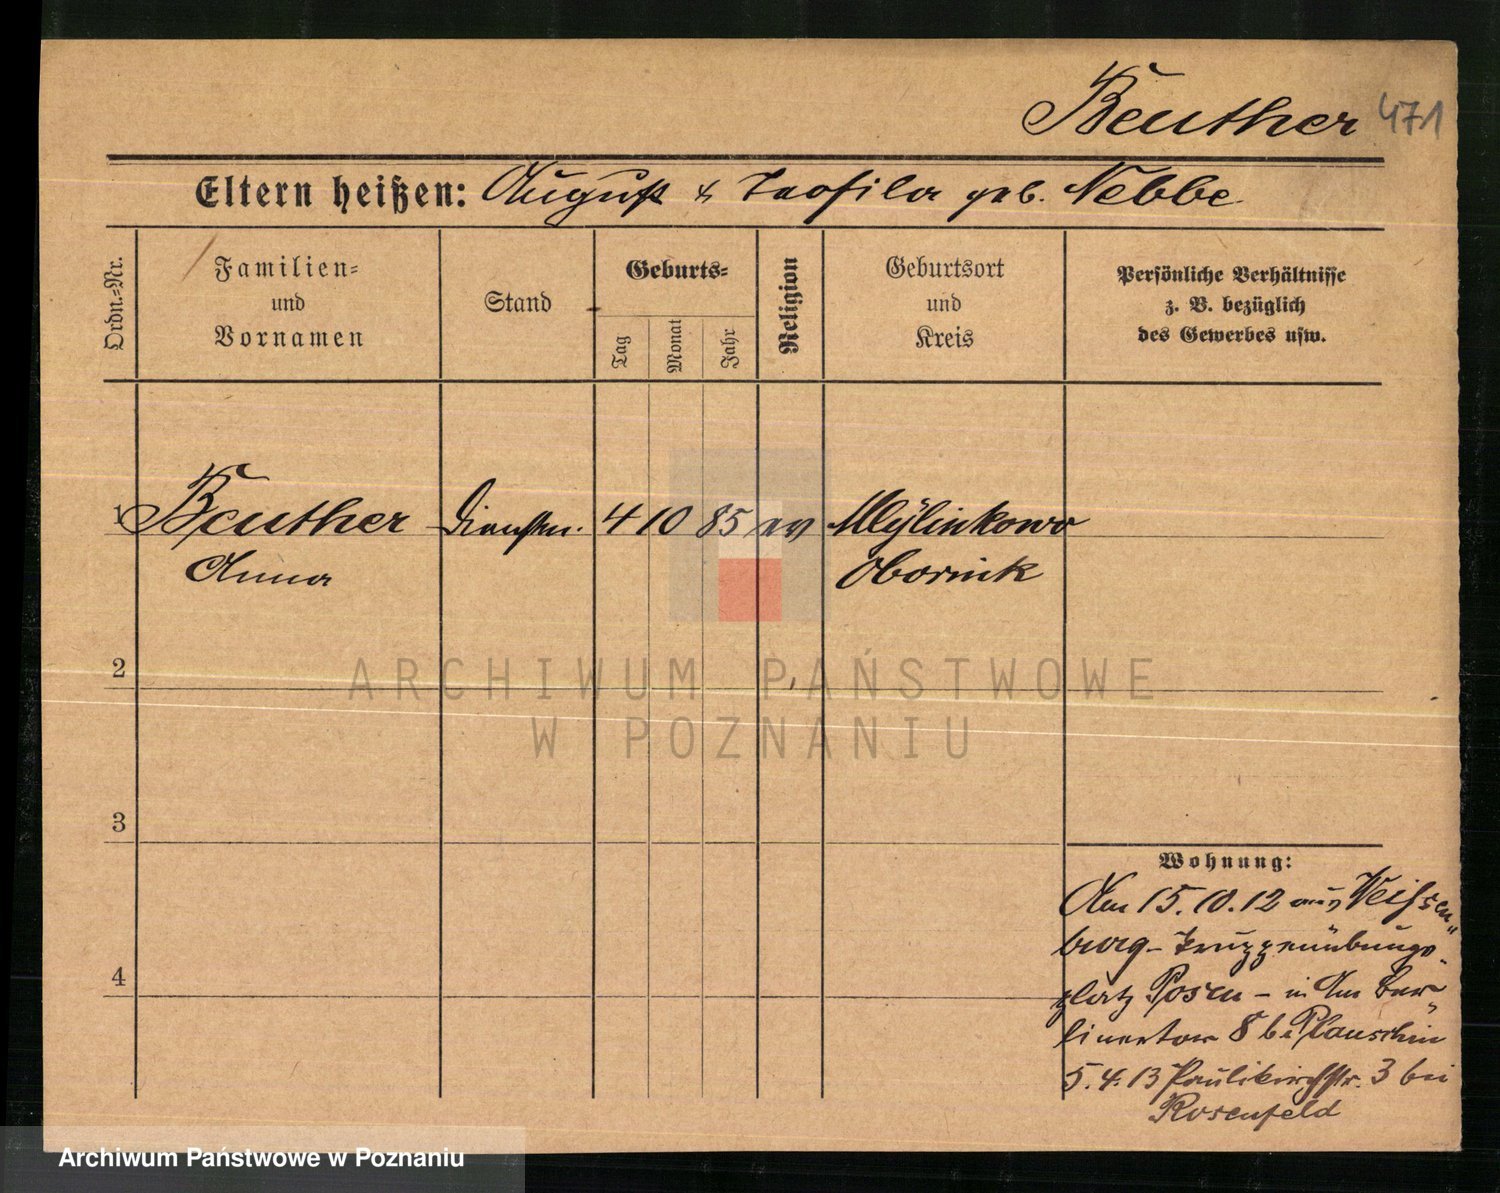 Beuther 471
Eltern heißen: August & Teofila geb. Nebbe
Ordn.-Nr.
Familien-
und
Vornamen
Stand
Geburts-
Tag
Monat
Jahr
Religion
Geburtsort
und
Kreis
Persönliche Verhältnisse
z. B. bezüglich
des Gewerbes usw.
1 Beuther Dienstm. 4 10 85 ev Mlynkowo
Anna Obornik
2
3
4
Wohnung:
Am 15.10.12 aus Weissen-
burg - Truppenübungs-
platz Posen - in Am Ber-
linertor 8 bei Plauschin
5.4.13 Paulikirchstr. 3 bei
Rosenfeld
ARCHIWUM PAŃSTWOWE
W POZNANIU
Archiwum Państwowe w Poznaniu